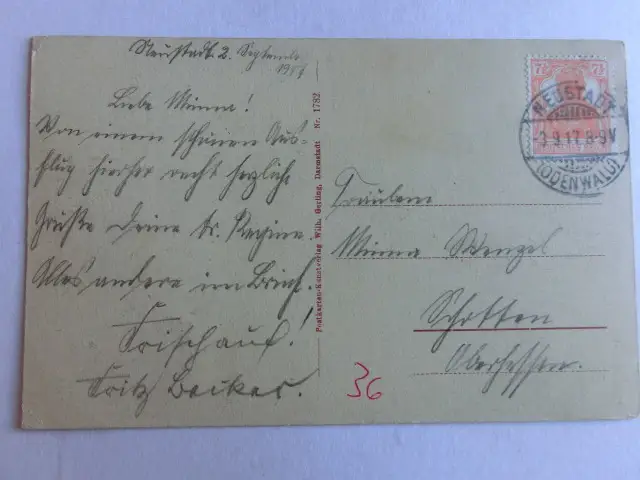 Neustadt 2. September
1917
Liebe Minna!
Von einem schönen Aus-
flug hierher recht herzliche
Grüße deine tr. Regine.
Alles andere im Brief.
Frisch auf!
Fritz Becker.
Postkarten-Kunstverlag Wilh. Gerling, Darmstadt Nr. 1782
7½ 7½
NEUSTADT
-3.9.17.8-9V
(ODENWALD)
Fräulein
Minna Wenzel
Schotten
Oberhessen.
36